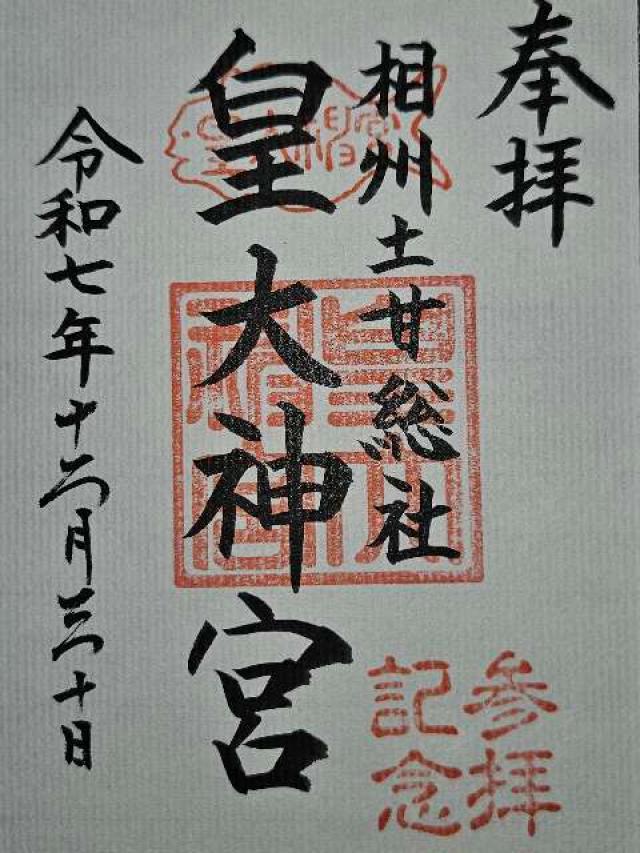 奉拝
相州土甘総社
皇大神宮
令和七年十二月三十日
参拝
記念